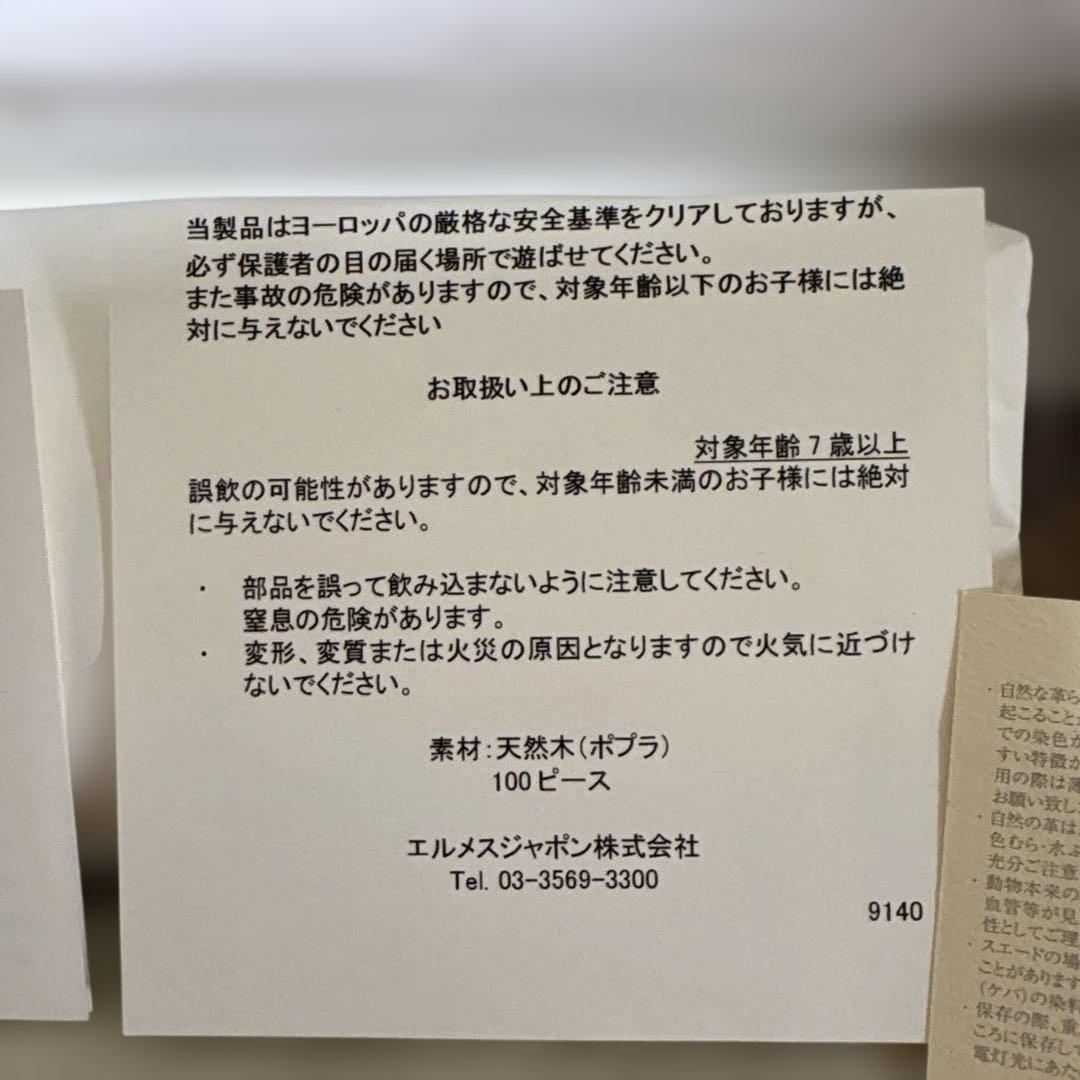 当製品はヨーロッパの厳格な安全基準をクリアしておりますが、
必ず保護者の目の届く場所で遊ばせてください。
また事故の危険がありますので、対象年齢以下のお子様には絶
対に与えないでください
お取扱い上のご注意
対象年齢7歳以上
誤飲の可能性がありますので、対象年齢未満のお子様には絶対
に与えないでください。
・ 部品を誤って飲み込まないように注意してください。
窒息の危険があります。
・ 変形、変質または火災の原因となりますので火気に近づけ
ないでください。
素材:天然木(ポプラ)
100ピース
エルメスジャポン株式会社
Tel. 03-3569-3300
9140
・自然な革ら
起こること
での染色が
すい特徴が
用の際は薄
お願い致し
・自然の革は
色むら・水ぶ
充分ご注意
・動物本来の
血管等が見
性としてご理
・スエードの場
ことがあります
(ケバ)の染料
・保存の際、重
ころに保存して
電灯光にあた